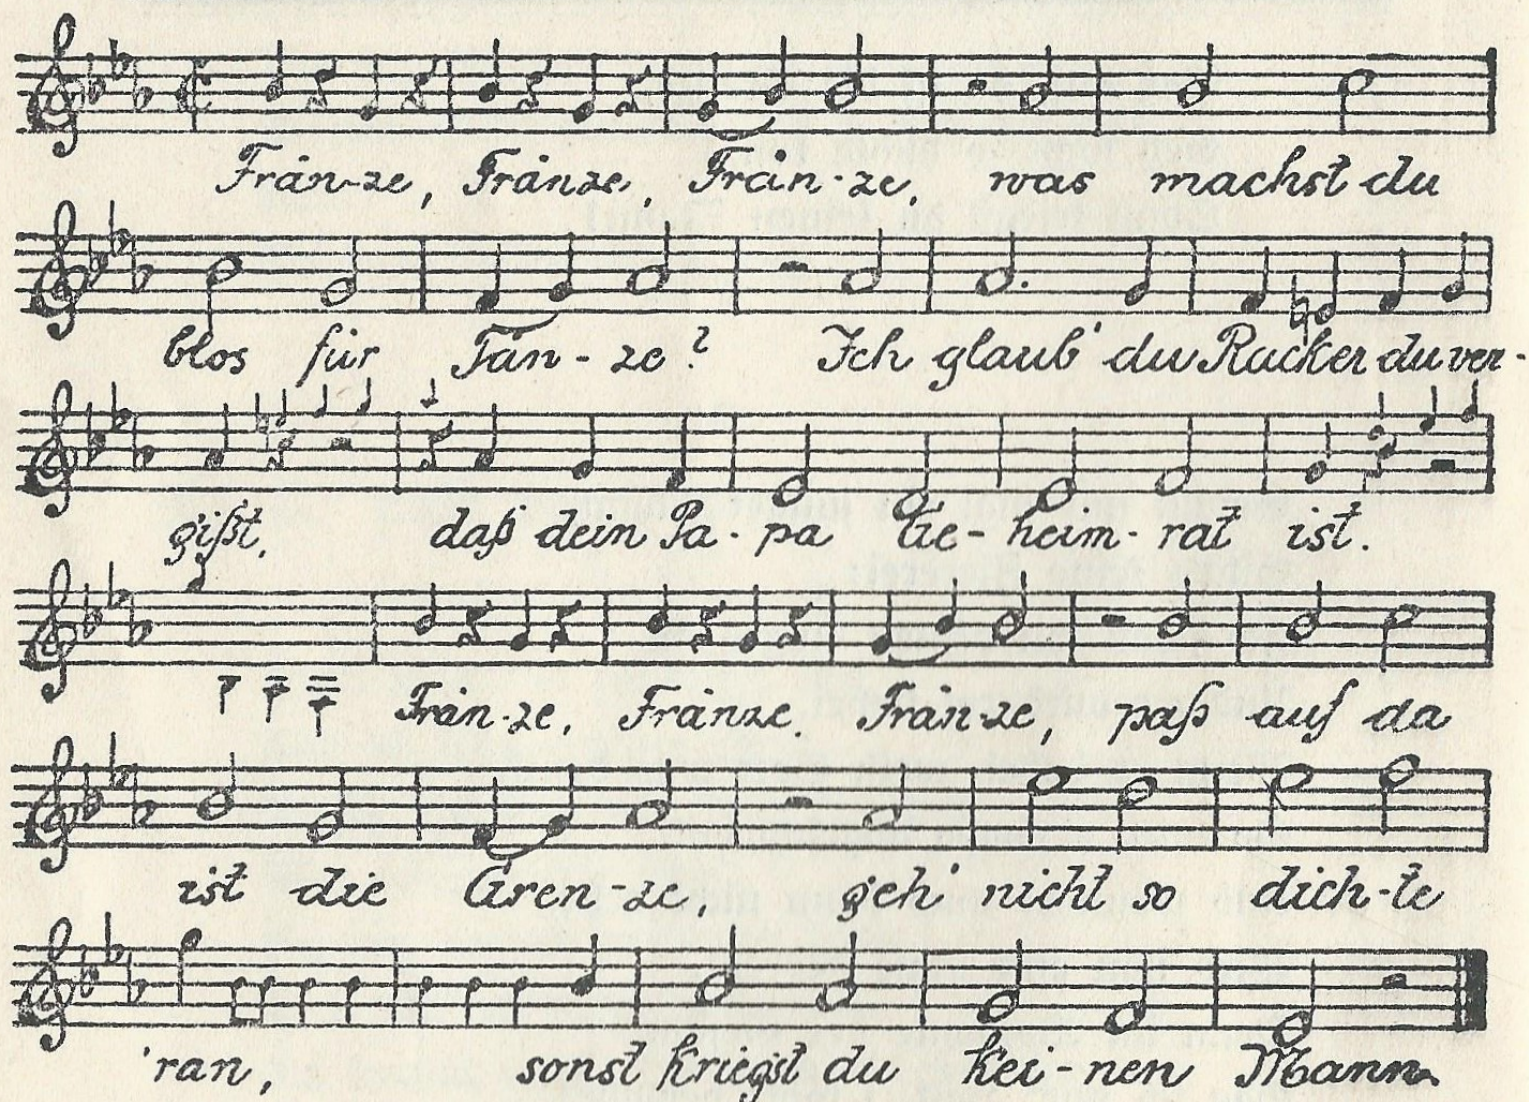 Frän-ze, Fränze, Frän-ze, was machst du
blos für Tän-ze? Ich glaub' du Racker du ver-
gißt, daß dein Pa-pa Ge-heim-rat ist.
Frän-ze, Fränze, Frän-ze, paß auf da
ist die Gren-ze, geh' nicht so dich-te
'ran, sonst kriegst du kei-nen Mann.